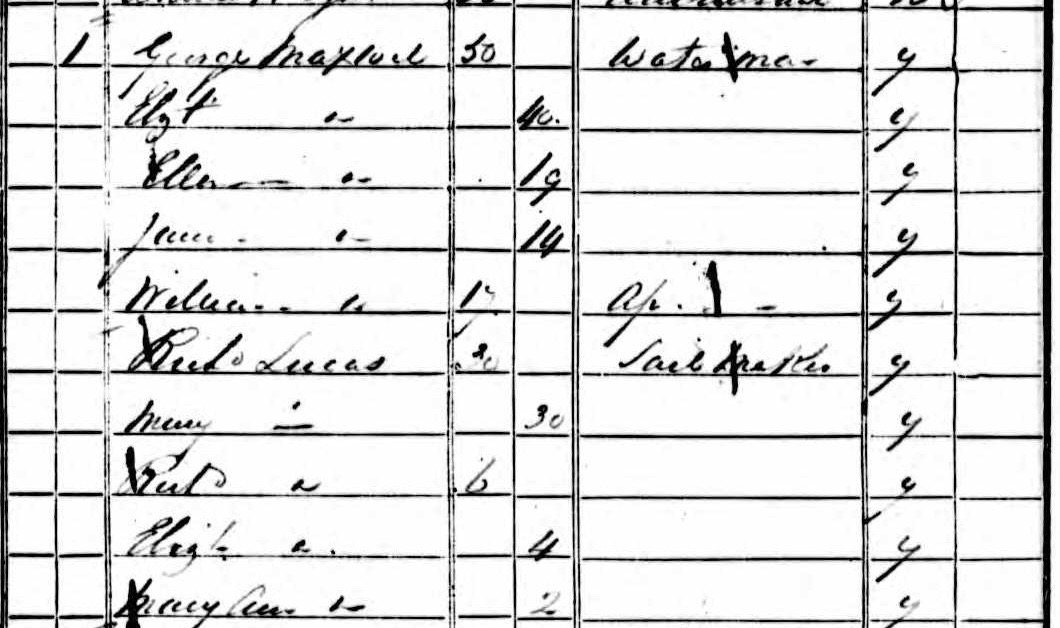 1 George Maxwell 50 Waterman y
Elizth " 40 y
Ellen " 19 y
Jane " 14 y
William " 17 Ap. y
Richd Lucas 30 Sail Maker y
Mary " 30 y
Richd " 6 y
Elizth " 4 y
Mary Ann " 2 y